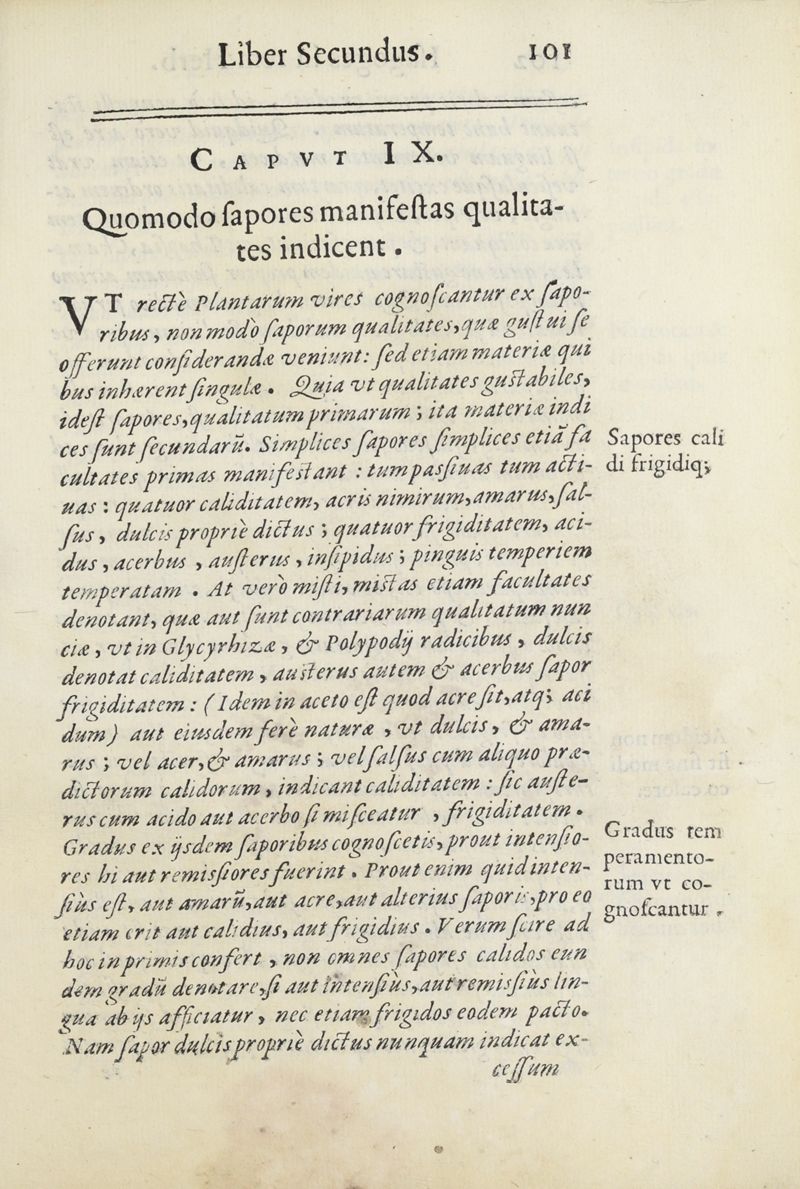 Liber Secundus. 101
CAPVT IX.
Quomodo ſapores manifeſtas qualita-
tes indicent.
VT rectè Plantarum vires cognoſcantur ex ſapo-
ribus, non modò ſaporum qualitates, quæ guſtui ſe
offerunt conſiderandæ veniunt: ſed etiam materiæ qui
bus inhærent ſingulæ. Quia vt qualitates guſtabiles,
ideſt ſapores, qualitatum primarum; ita materiæ indi
ces ſunt ſecundarũ. Simplices ſapores ſimplices etiã fa
Sapores cali
cultates primas manifeſtant: tum paſſiuas tum acti-
di frigidiq;
uas: quatuor caliditatem, acris nimirum, amarus, ſal-
ſus, dulcis propriè dictus; quatuor frigiditatem, aci-
dus, acerbus, auſterus, inſipidus; pinguis temperiem
temperatam. At verò miſti, miſtas etiam facultates
denotant, quæ aut ſunt contrariarum qualitatum nun
ciæ, vt in Glycyrhizæ, & Polypodij radicibus, dulcis
denotat caliditatem, auſterus autem & acerbus ſapor
frigiditatem: (Idem in aceto eſt quod acre ſit, atq; aci
dum) aut eiusdem ferè naturæ, vt dulcis, & ama-
rus; vel acer, & amarus; vel ſalſus cum aliquo præ-
dictorum calidorum, indicant caliditatem: ſic auſte-
rus cum acido aut acerbo ſi miſceatur, frigiditatem.
Gradus ex ijsdem ſaporibus cognoſcetis, prout intenſio-
Gradus tem
res hi aut remiſſiores fuerint. Prout enim quid inten-
peramento-
ſiùs eſt, aut amarũ, aut acre, aut alterius ſaporis, pro eo
rum vt co-
etiam erit aut calidius, aut frigidius. Verum ſcire ad
gnoſcantur.
hoc inprimis confert, non omnes ſapores calidos eun
dem gradũ denotare, ſi aut intenſiùs, aut remiſſiùs lin-
gua ab ijs afficiatur, nec etiam frigidos eodem pacto.
Nam ſapor dulcis propriè dictus nunquam indicat ex-
ceſſum